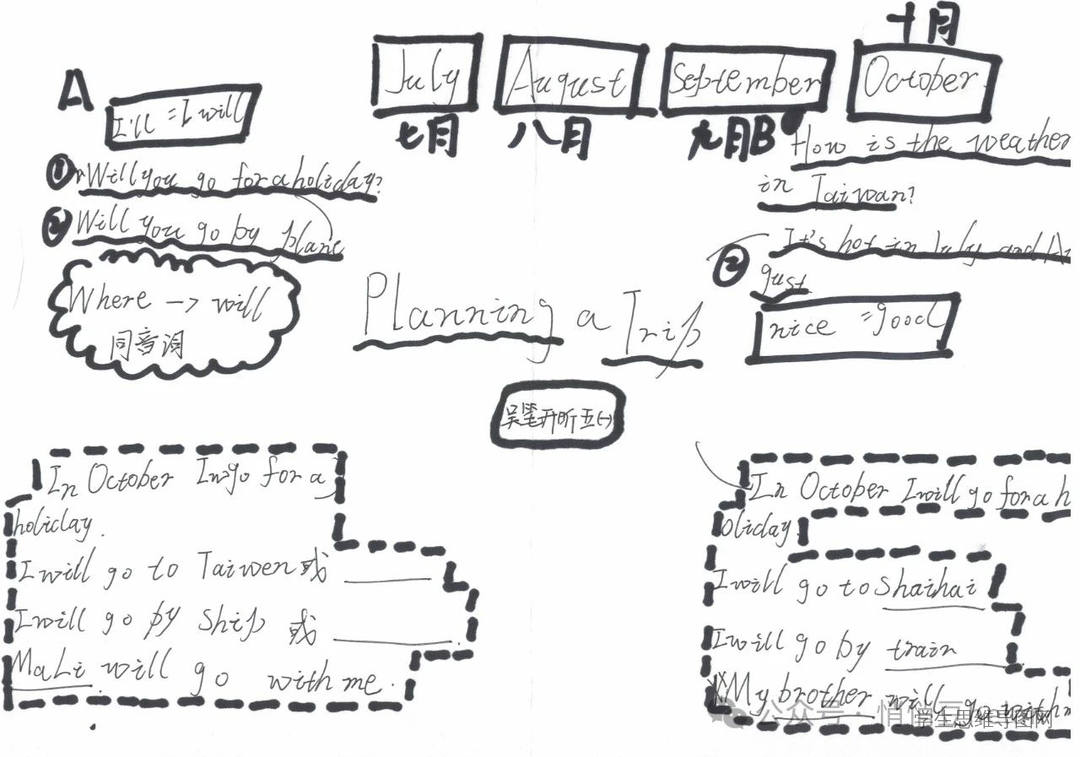 十月
July August September October
七月 八月 九月
A
I'll = I will
① Will you go for a holiday?
② Will you go by plane
Where → will
同音词
B
How is the weather
in Taiwan?
② It's hot in July and Au
gust
nice = good
Planning a Trip
五(一)
In October I go for a
holiday.
I will go to Taiwen或
I will go by Ship 或
MaLi will go with me.
In October I will go for a h
oliday
I will go to Shaihai
I will go by train
My brother will go with
公众号
学生思维导图网